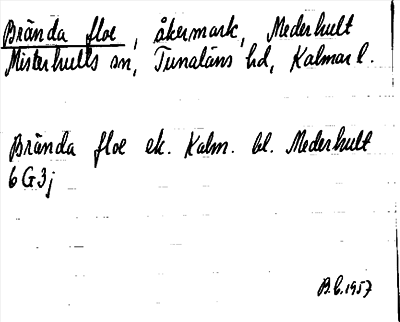 Brända floe, åkermark, Mederhult
Misterhults sn, Tunaläns hd, Kalmar l.
Brända floe ek. Kalm. bl. Mederhult
6G3j
B.L. 1957